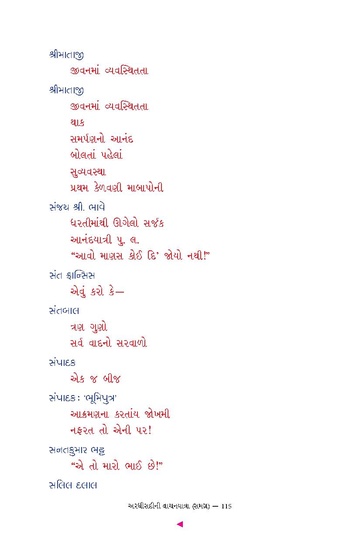 શ્રીમાતાજી
જીવનમાં વ્યવસ્થિતતા
શ્રીમાતાજી
જીવનમાં વ્યવસ્થિતતા
થાક
સમર્પણનો આનંદ
બોલતાં પહેલાં
સુવ્યવસ્થા
પ્રથમ કેળવણી માબાપોની
સંજય શ્રી. ભાવે
ધરતીમાંથી ઊગેલો સર્જક
આનંદયાત્રી પુ. લ.
“આવો માણસ કોઈ દિ' જોયો નથી!”
સંત ફ્રાન્સિસ
એવું કરો કે—
સંતબાલ
ત્રણ ગુણો
સર્વ વાદનો સરવાળો
સંપાદક
એક જ બીજ
સંપાદક : 'ભૂમિપુત્ર'
આક્રમણના કરતાંય જોખમી
નફરત તો એની પર!
સનતકુમાર ભટ્ટ
“એ તો મારો ભાઈ છે!”
સલિલ દલાલ
અરધીસદીની વાચનયાત્રા (સમગ્ર) — 115